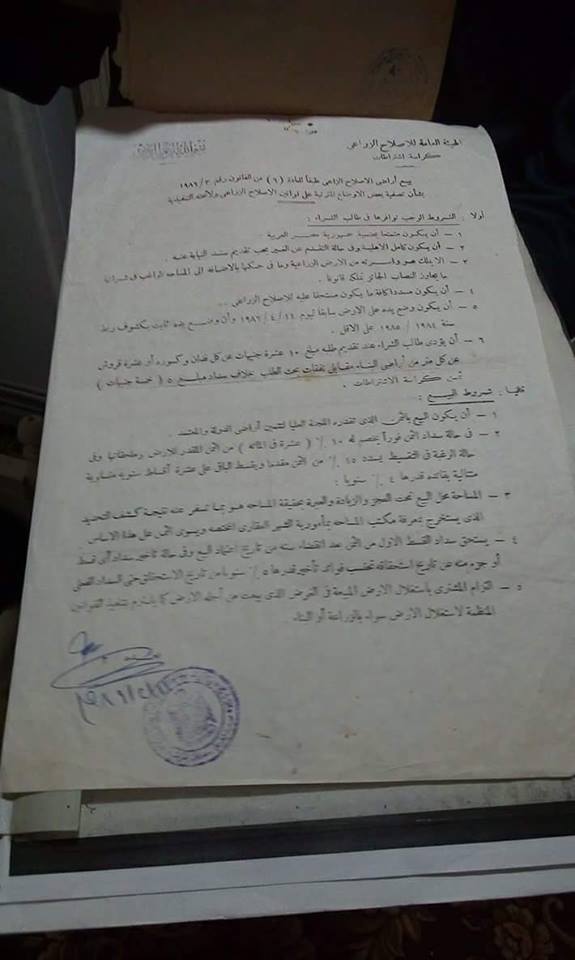 الهيئة العامة للاصلاح الزراعى
كراسة اشتراطات
بسم الله الرحمن الرحيم
بيع أراضى الاصلاح الزراعى طبقا للمادة (٦) من القانون رقم ٣ / ١٩٨٦
بشأن تصفية بعض الاوضاع المترتبة على قوانين الاصلاح الزراعى ولائحته التنفيذية
أولا : الشروط الواجب توافرها فى طالب الشراء :
١ – أن يكون متمتعا بجنسية جمهورية مصر العربية
٢ – أن يكون كامل الاهلية وفى حالة التقدم عن الغير يجب تقديم سند النيابة عنه
٣ – الا يملك هو وأسرته من الارض الزراعية وما فى حكمها بالاضافة الى المساحه الراغب فى شرائها
ما يجاوز النصاب الجائز تملكه قانونا .
٤ – أن يكون مسددا كافة ما يكون مستحقا عليه للاصلاح الزراعى ..
٥ – أن يكون وضع يده على الارض سابقا ليوم ٢٤ / ٤ / ١٩٨٦ وأن وضع يده ثابت بكشوف ربط
سنة ١٩٨٤ / ١٩٨٥ على الاقل .
٦ – أن يؤدى طالب الشراء عند تقديم طلبه مبلغ ١٠ عشرة جنيهات عن كل فدان وكسوره أو عشرة قروش
عن كل متر من أراضى البناء مقابل نفقات بحث الطلب خلاف سداد مبلغ ٥ ( خمسة جنيهات )
ثمن كراسة الاشتراطات .
ثانيا : شروط البيع :
١ – أن يكون البيع بالثمن الذى تقدره اللجنة العليا لتثمين أراضى الدولة والمعتمد .
٢ – فى حالة سداد الثمن فورا يخصم له ١٠ ٪ ( عشرة فى المائة ) من الثمن المقدر للارض وملحقاتها وفى
حالة الرغبة فى التقسيط يسدد ٢٥ ٪ من الثمن مقدما ويقسط الباقى على عشرة أقساط سنوية متساوية
متتالية بفائدة قدرها ٤ ٪ سنويا :
٣ – المساحة محل البيع تحت العجز والزيادة والعبرة بحقيقة المساحه هو بما تسفر عنه نتيجة كشف التحديد
الذى يستخرج بمعرفة مكتب المساحه بمأمورية الشهر العقارى المختصه ويسوى الثمن على هذا الاساس
٤ – يستحق سداد القسط الاول من الثمن بعد انقضاء سنه من تاريخ اعتماد البيع وفى حالة تأخير سداد أى قسط
أو جزء منه عن تاريخ استحقاقه تحتسب فوائد تأخير قدرها ٥ ٪ سنويا من تاريخ الاستحقاق حتى السداد الفعلى
٥ – التزام المشترى باستغلال الارض المبيعة فى الغرض الذى بيعت من أجله الارض كما يلتزم بتنفيذ القوانين
المنظمة لاستغلال الارض سواء بالزراعة أو البناء .